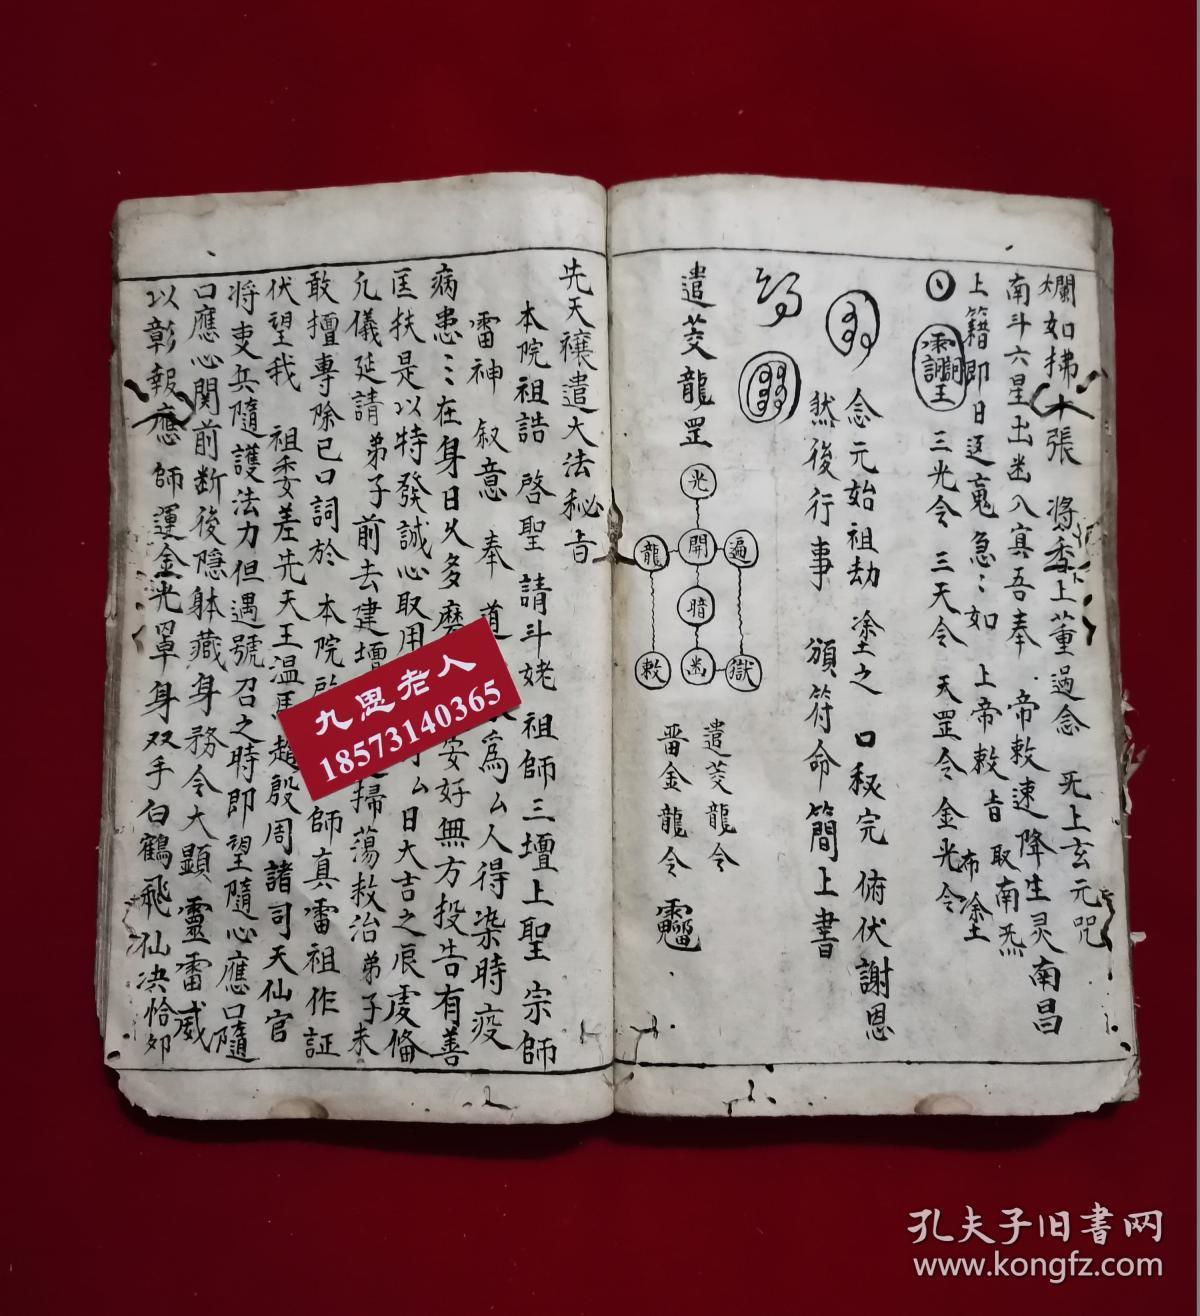 爛如拂十張 將香上薰過念 旡上玄元咒
南斗六星出幽入寘吾奉 帝敕速降生灵南昌
上籍即日逐嵬急〻如 上帝敕旨取南炁
布凃
三光令 三天令 天罡令 金光令
念元始祖劫 凃之 口秘完 俯伏謝恩
然後行事 頒符命簡上書
遣茭龍罡
光
龍 開 遍
暗
敕 幽 獄
遣茭龍令
雷金龍令
先天禳遣大法秘旨
本院祖誥 啓聖 請斗姥 祖師三壇上聖宗師
雷神 叙意 奉 道 爲厶人得染時疫
病患〻在身日久多 安好無方投告有善
匡扶是以特發誠心取用 厶日大吉之辰虔俻
凢儀延請 弟子前去建壇 掃蕩救治弟子未
敢擅專除已口詞於 本院 師真雷祖作証
伏望我 祖委差先天王温馬趙殷周諸司天仙官
將吏兵隨護法力但遇號召之時即望隨心應口隨
口應心関前断後隱躰藏身務令大顯 靈雷威
以彰報應 師運金光罩身双手白鶴飛仙决恰夘
九思老人
18573140365
孔夫子旧书网
www.kongfz.com